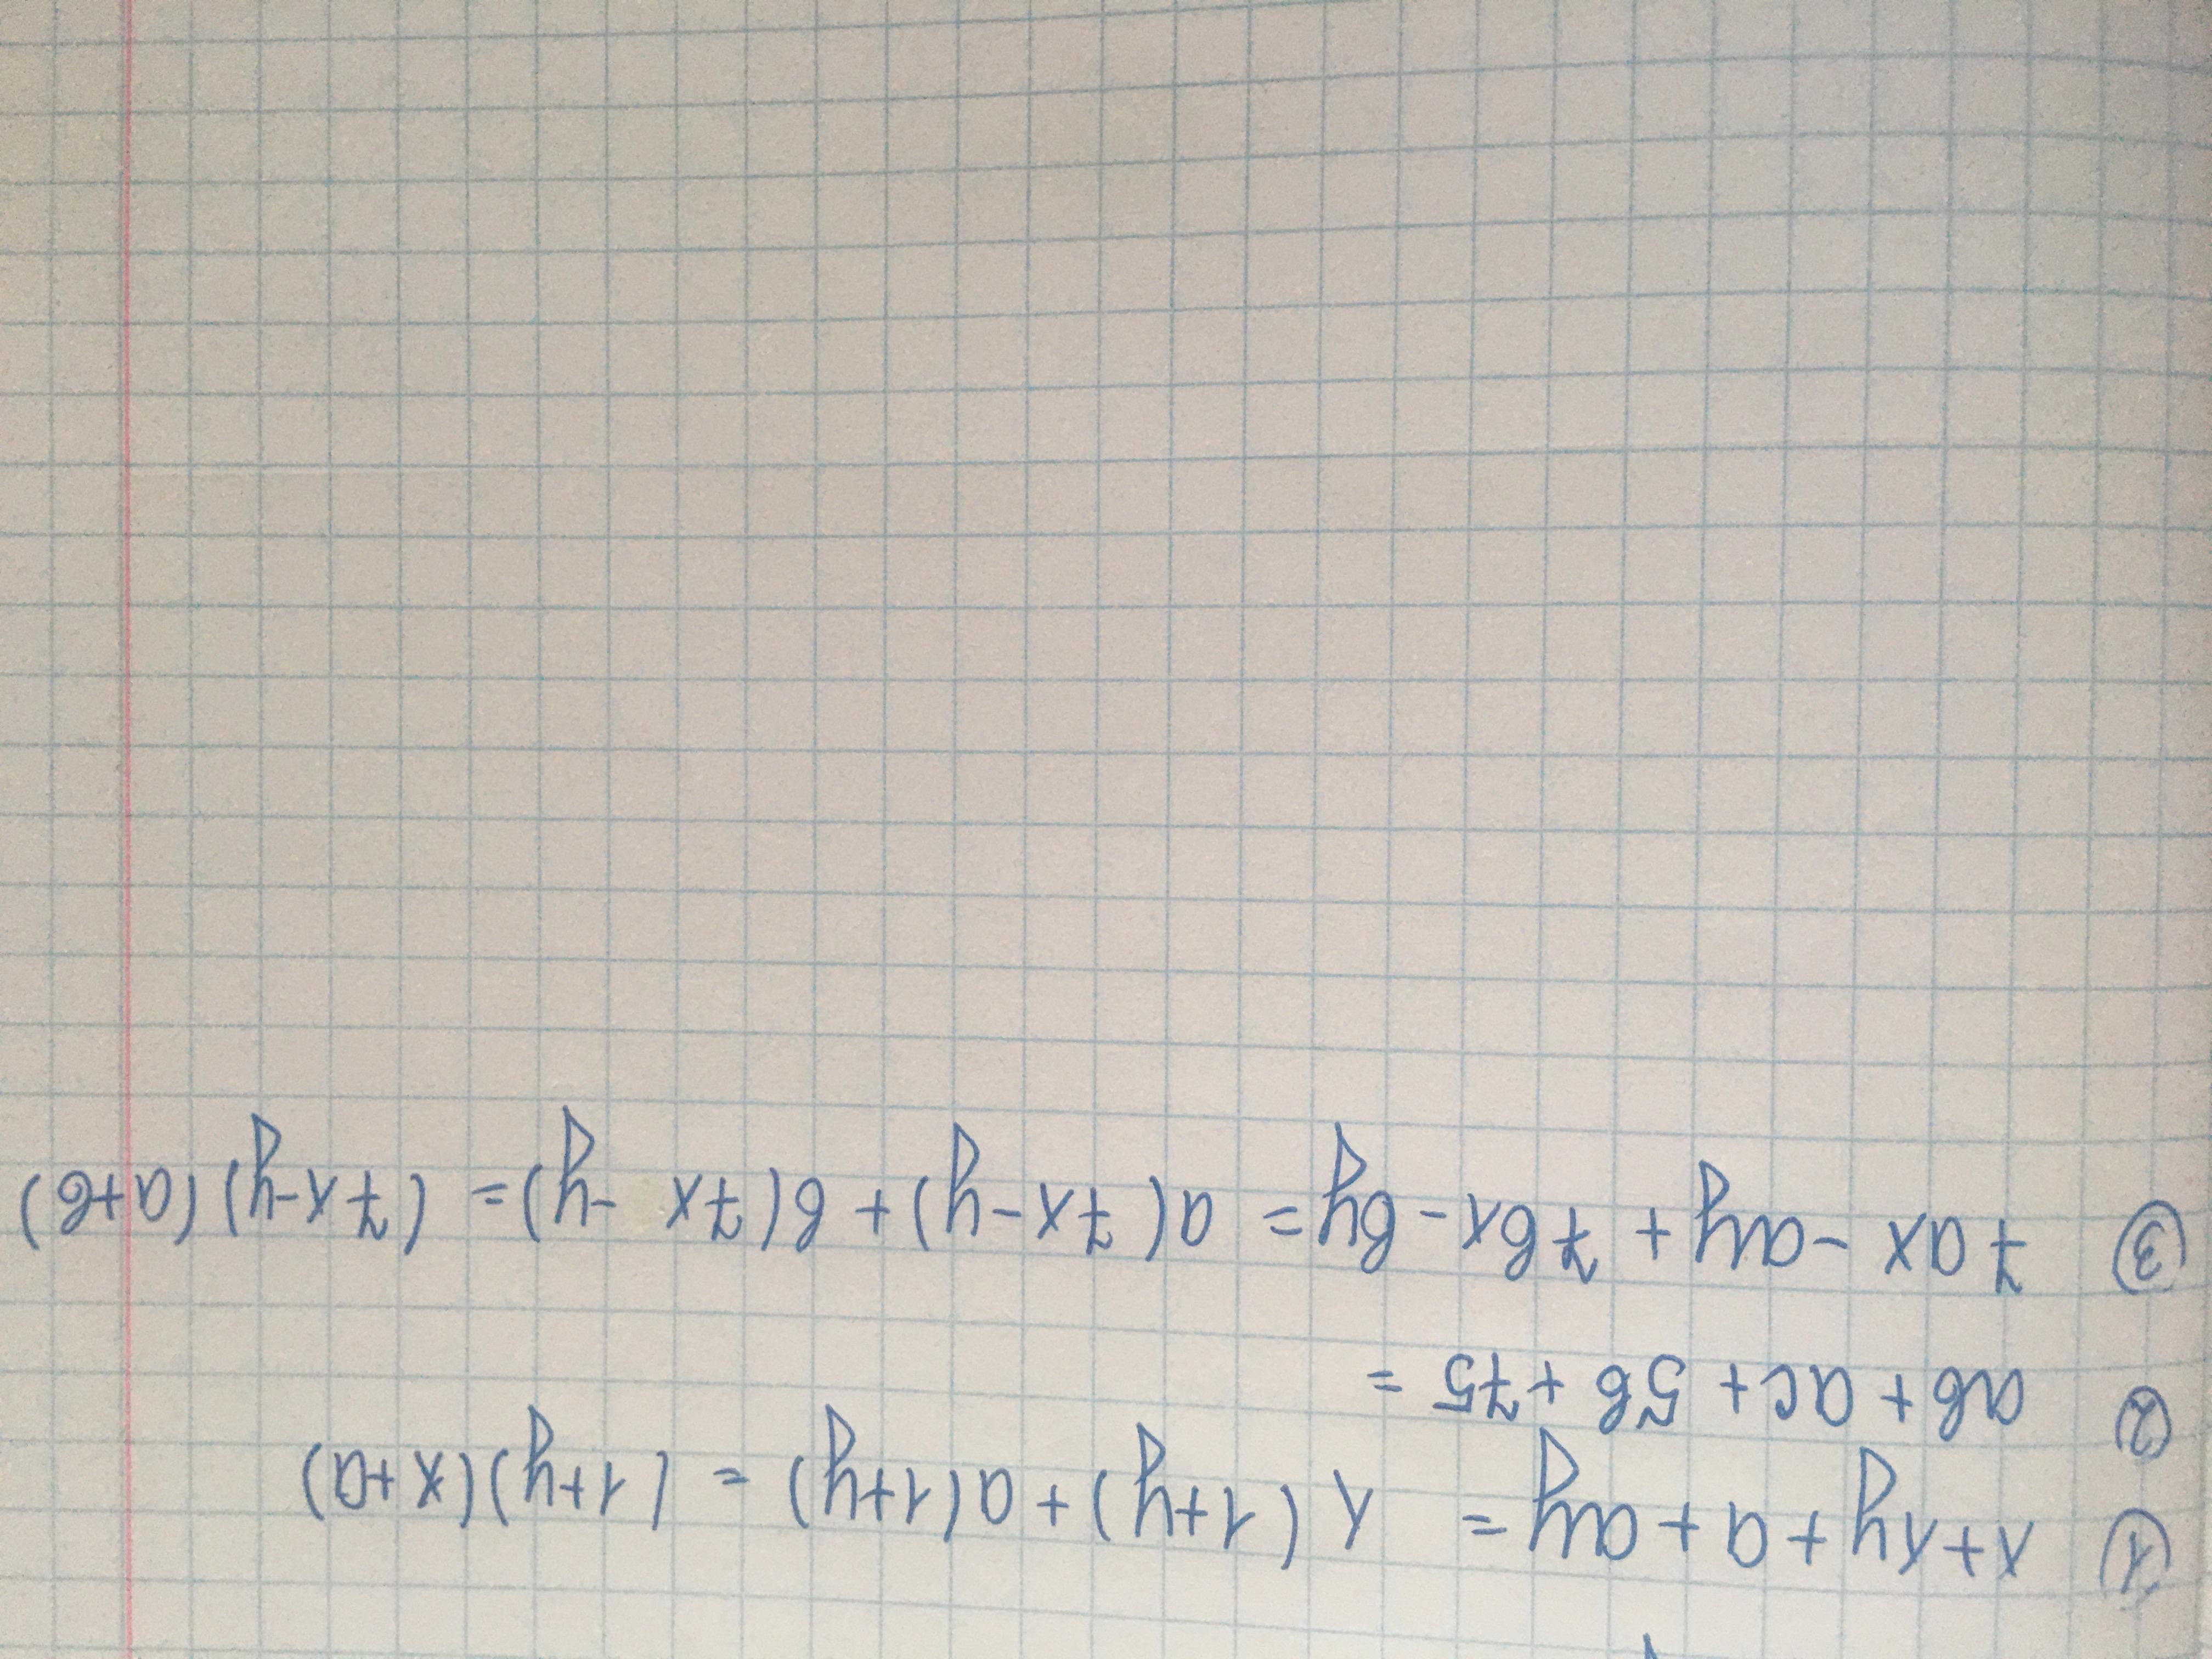 ① x+xy+a+ay= x(1+y)+a(1+y) = (1+y)(x+a)
② ab+ac+5b+75 =
③ 7ax-ay+7bx-by= a(7x-y)+b(7x-y)=(7x-y)(a+b)